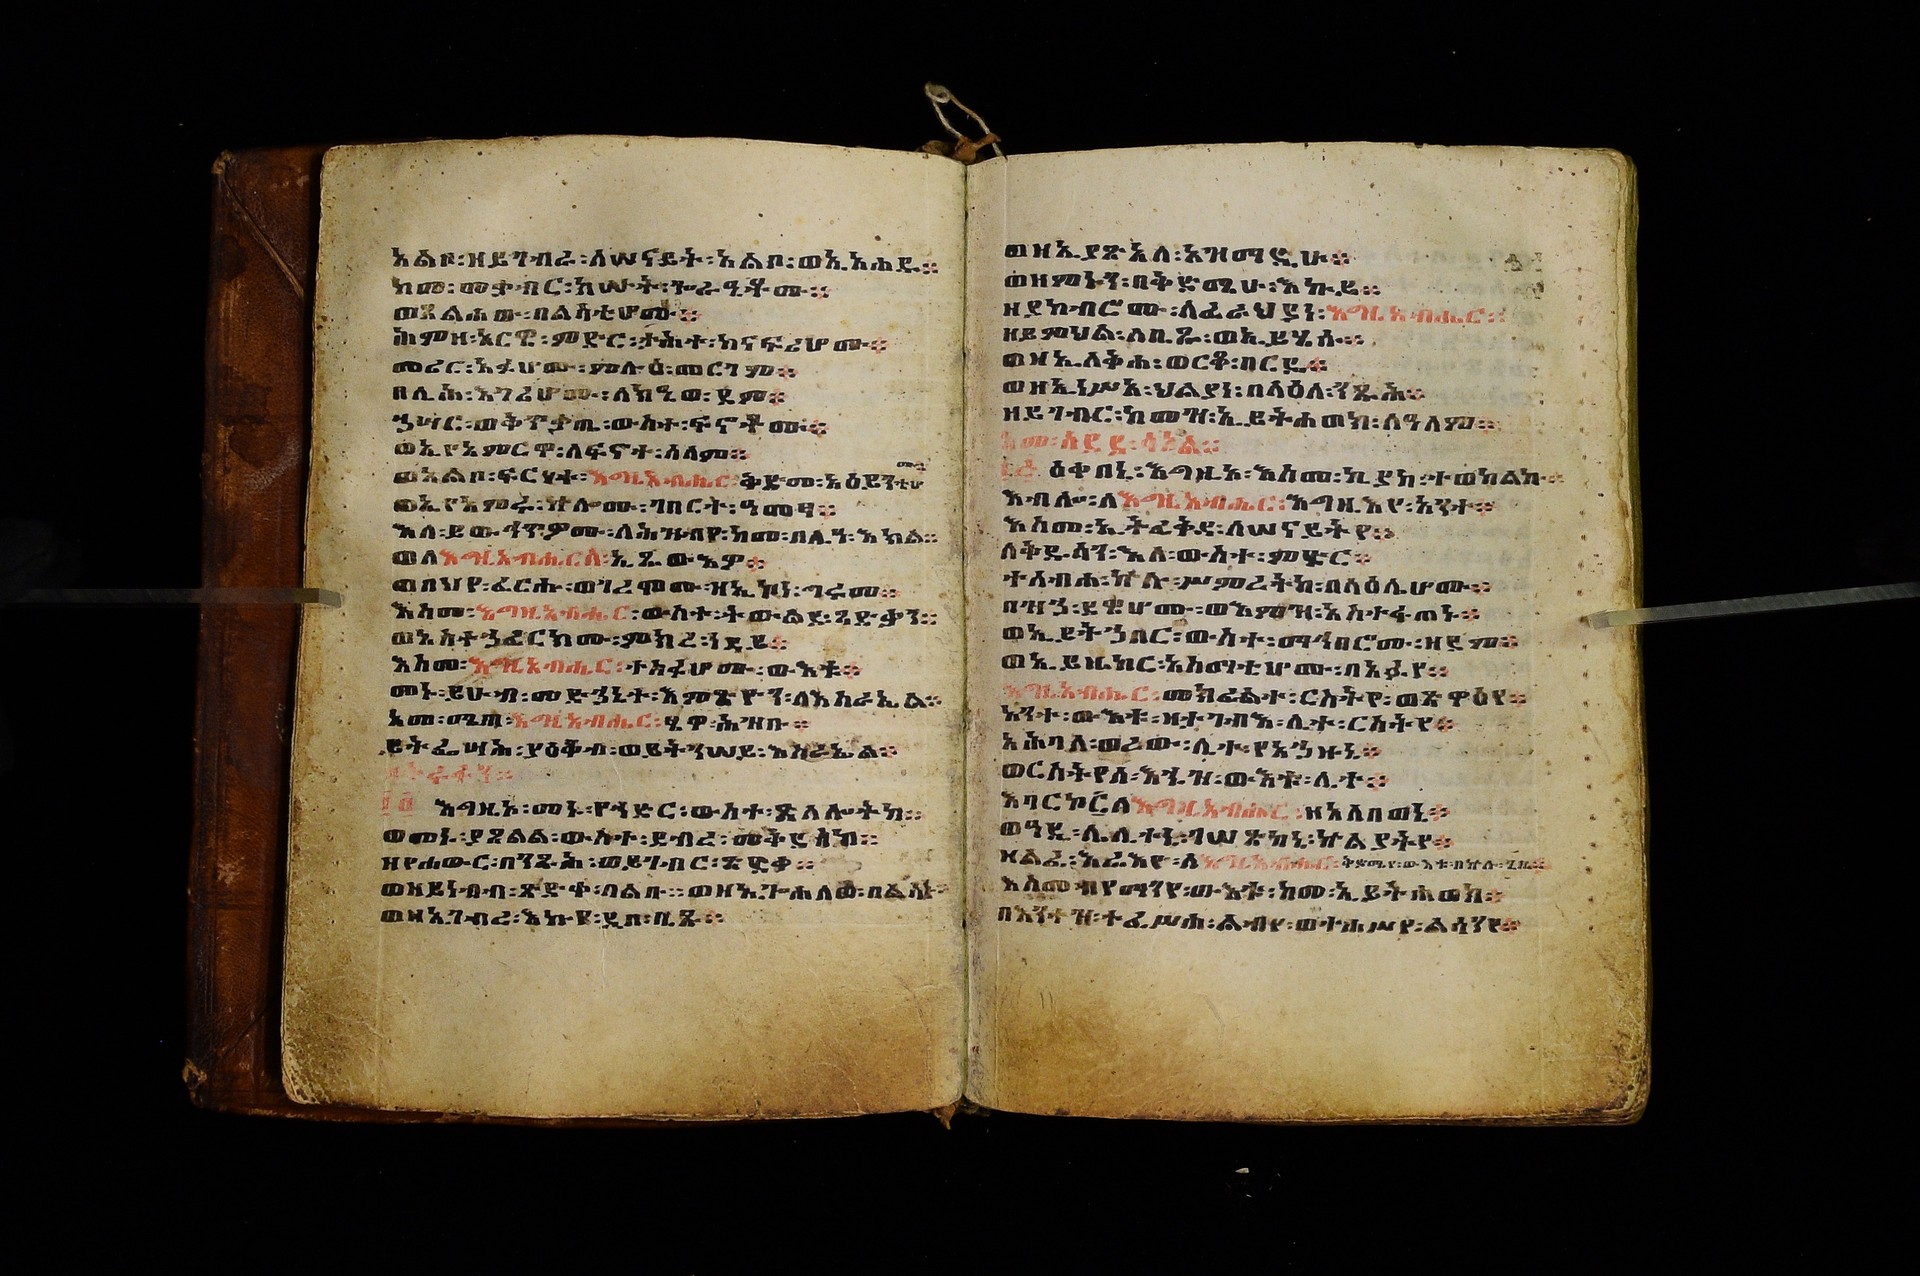 አልቦ፡ዘይገብራ፡ለሠናይት፡አልቦ፡ወኢአሐዱ።
ከመ፡መቃብር፡ክሡት፡ጐራዒቶሙ።
ወጸልሐው፡በልሳቲሆሙ።
ሕምዘ፡አርዌ፡ምድር፡ታሕተ፡ከናፍሪሆሙ።
መሪር፡አፉሆሙ፡ምሉዕ፡መርገም።
በሊሕ፡እገሪሆሙ፡ለክዒወ፡ደም።
ኃሣር፡ወቅጥቃጤ፡ውስተ፡ፍኖቶሙ።
ወኢየአምርዋ፡ለፍኖተ፡ሰላም።
ወአልቦ፡ፍርሃተ፡እግዚአብሔር፡ቅድመ፡አዕይንቲሆሙ።
ወኢየአምሩ፡ኵሎሙ፡ገበርተ፡ዓመፃ።
እለ፡ይውኅጥዎሙ፡ለሕዝብየ፡ከመ፡በሊዓ፡እክል።
ወለእግዚአብሔርሰ፡ኢጼውእዎ።
ወበህየ፡ፈርሑ፡ወገረሞሙ፡ዘኢኮነ፡ግሩመ።
እስመ፡እግዚአብሔር፡ውስተ፡ትውልደ፡ጻድቃን።
ወአስተኃፈርክሙ፡ምክረ፡ነዳይ።
እስመ፡እግዚአብሔር፡ተስፋሆሙ፡ውእቱ።
መኑ፡ይሁብ፡መድኃኒተ፡እምጽዮን፡ለእስራኤል።
አመ፡ሜጠ፡እግዚአብሔር፡ፄዋ፡ሕዝቡ።
ይትፌሣሕ፡ያዕቆብ፡ወይትኀሠይ፡እስራኤል።
፲፬ እግዚኦ፡መኑ፡የኀድር፡ውስተ፡ጽላሎትከ።
ወመኑ፡ያጸልል፡ውስተ፡ደብረ፡መቅደስከ።
ዘየሐውር፡በንጹሕ፡ወይገብር፡ጽድቀ።
ወዘይነብብ፡ጽድቀ፡በልቡ።ወዘኢጐሕለወ፡በልሳኑ።
ወዘኢገብረ፡እኩየ፡ዲበ፡ቢጹ።
ወዘኢያጽአለ፡አዝማዲሁ።
ወዘምኑን፡በቅድሜሁ፡እኩይ።
ዘያከብሮሙ፡ለፈራህያነ፡እግዚአብሔር።
ዘይምህል፡ለቢጹ፡ወኢይሄሱ።
ወዘኢለቅሐ፡ወርቆ፡በርዴ።
ወዘኢነሥአ፡ህልያነ፡በላዕለ፡ንጹሕ።
ዘይገብር፡ከመዝ፡ኢይትሐወክ፡ለዓለም።
፲፭ ዕቀበኒ፡እግዚኦ፡እስመ፡ኪያከ፡ተወከልኩ።
እብሎ፡ለእግዚአብሔር፡እግዚእየ፡አንተ።
እስመ፡ኢትፈቅዳ፡ለሠናይትየ።
ለቅዱሳን፡እለ፡ውስተ፡ምድር።
ተሰብሐ፡ኵሉ፡ሥምረትከ፡በላዕሌሆሙ።
በዝኃ፡ደዌሆሙ፡ወእምዝ፡አስተፋጠኑ።
ወኢይትኃበር፡ውስተ፡ማኅበሮሙ፡ዘደም።
ወኢይዜከር፡አስማቲሆሙ፡በአፉየ።
እግዚአብሔር፡መክፈልተ፡ርስትየ፡ወጽዋዕየ።
አንተ፡ውእቱ፡ዘታገብእ፡ሊተ፡ርስትየ።
አሕባለ፡ወረው፡ሊተ፡የአኃዙኒ።
ወርስትየሰ፡እኁዝ፡ውእቱ፡ሊተ።
እባርኮ፡ለእግዚአብሔር፡ዘአለበወኒ።
ወዓዲ፡ሌሊተኒ፡ገሠጻኒ፡ኵልያትየ።
ዘልፈ፡እሬእዮ፡ለእግዚአብሔር፡ቅድሜየ፡ውእቱ፡በኵሉ፡ጊዜ።
እስመ፡በየማንየ፡ውእቱ፡ከመ፡ኢይትሐወክ።
በእንተዝ፡ተፈሥሐ፡ልብየ፡ወተሐሥየ፡ልሳንየ።